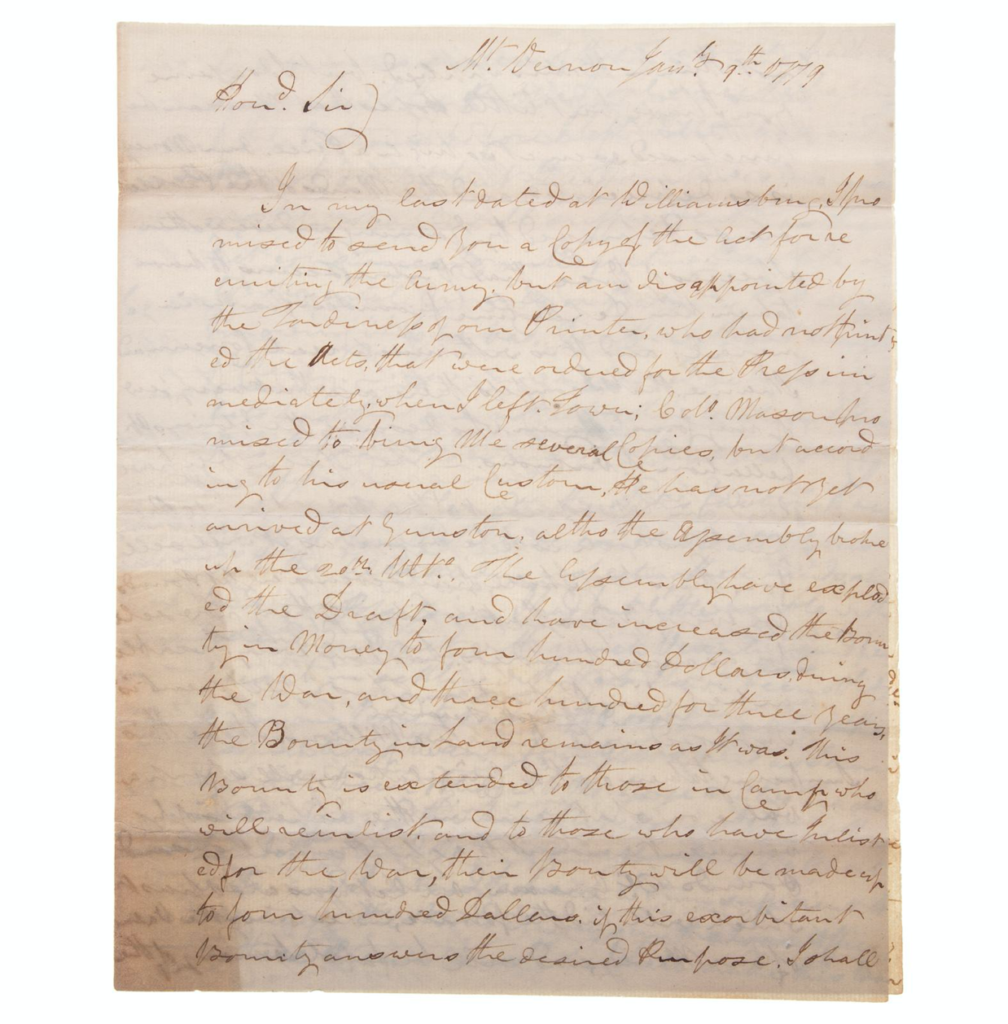 Mt. Vernon Jany. 9th. 1779
Hond. Sir
In my last dated at Williamsburg, I pro
mised to send you a Copy of the Act for re
cruiting the Army, but am disappointed by
the Tardiness of our Printer, who had not print
ed the Acts, that were ordered for the Press im
mediately, when I left Town; Colo. Mason pro
mised to bring Me several Copies, but accord
ing to his usual Custom, He has not yet
arrived at Gunston, altho the Assembly broke
up the 20th. Ulto. The Assembly have explod
ed the Draft, and have increased the Boun
ty in Money to four hundred Dollars, during
the War, and three hundred for three Years,
the Bounty in Land remains as It was. This
Bounty is extended to those in Camp, who
will reinlist, and to those who have Inlist
ed for the War, their Bounty will be made up
to four hundred Dollars. if this exorbitant
Bounty answers the desired Purpose, I shall